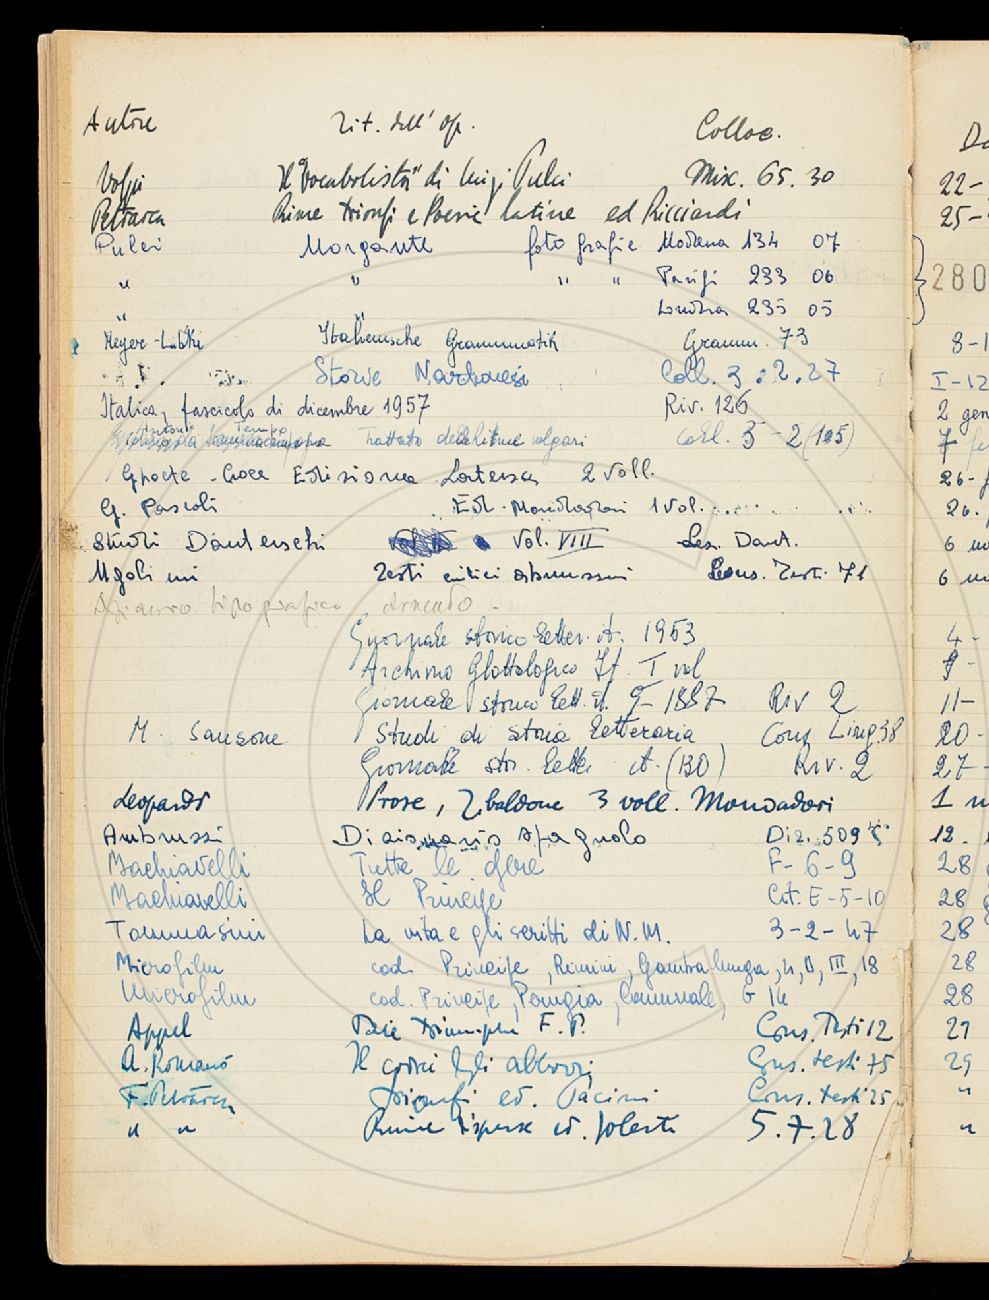 Autore Tit. dell' op. Colloc. Da
Volpi Il "Vocabolista" di Luigi Pulci Misc. 65. 30 22-
Petrarca Rime Trionfi e Poesie latine ed Ricciardi 25-
Pulci Morgante foto grafie Modena 134 07
" " " " Parigi 233 06 280
" " Londra 235 05
Meyer-Lübke Italienische Grammatik Gramm. 73 8-1
Storie Narbonesi Coll. 3.2.27 I-12
Italica, fascicolo di dicembre 1957 Riv. 126 2 gen
Antonio da Tempo Trattato delle rime volgari Coll. 5-2 (105) 7 fe
Goethe - Croce Edizione Laterza 2 voll. 26-f
G. Pascoli Ed. Mondadori 1 vol. 26.
Studi Danteschi Vol. VIII Les. Dant. 6 m
Ugolini Testi critici Cons. Testi. 71 6 m
tipografico
Giornale storico letter. it. 1953 4-
Archivio Glottologico It. I vol 9-
Giornale storico lett. it. 9-1887 Riv 2 11-
M. Sansone Studi di storia letteraria Cons Ling 38 20-
Giornale stor. lett. it. (130) Riv. 2 27-
Leopardi Prose, Zibaldone 3 voll. Mondadori 1 m
Ambruzzi Dizionario spagnolo Diz. 509 12.
Machiavelli Tutte le opere F-6-9 28
Machiavelli Il Principe Cit. E-5-10 28
Tommasini La vita e gli scritti di N.M. 3-2-47 28
Microfilm cod. Principe, Rimini, Gambalunga, 4, II, III, 18 28
Microfilm cod. Principe, Perugia, Comunale, G 14 28
Appel Die Triumphe F. P. Cons. Testi 12 29
A. Romanò Il codice degli abbozzi Cons. testi 75 29
F. Petrarca Trionfi ed. Pacini Cons. testi 25 "
" " Rime disperse ed. Solerti 5.7.28 "